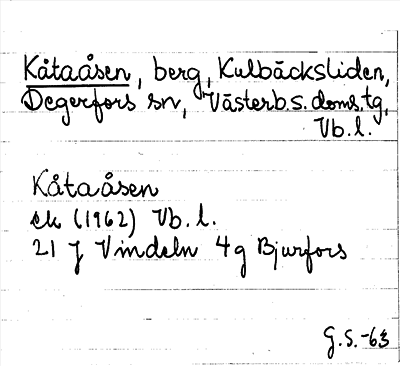 Kåtaåsen, berg, Kulbäcksliden,
Degerfors sn, Västerb.s. doms.tg,
Vb.l.
Kåtaåsen
ek (1962) Vb.l.
21 J Vindeln 4g Bjurfors
G.S.-63